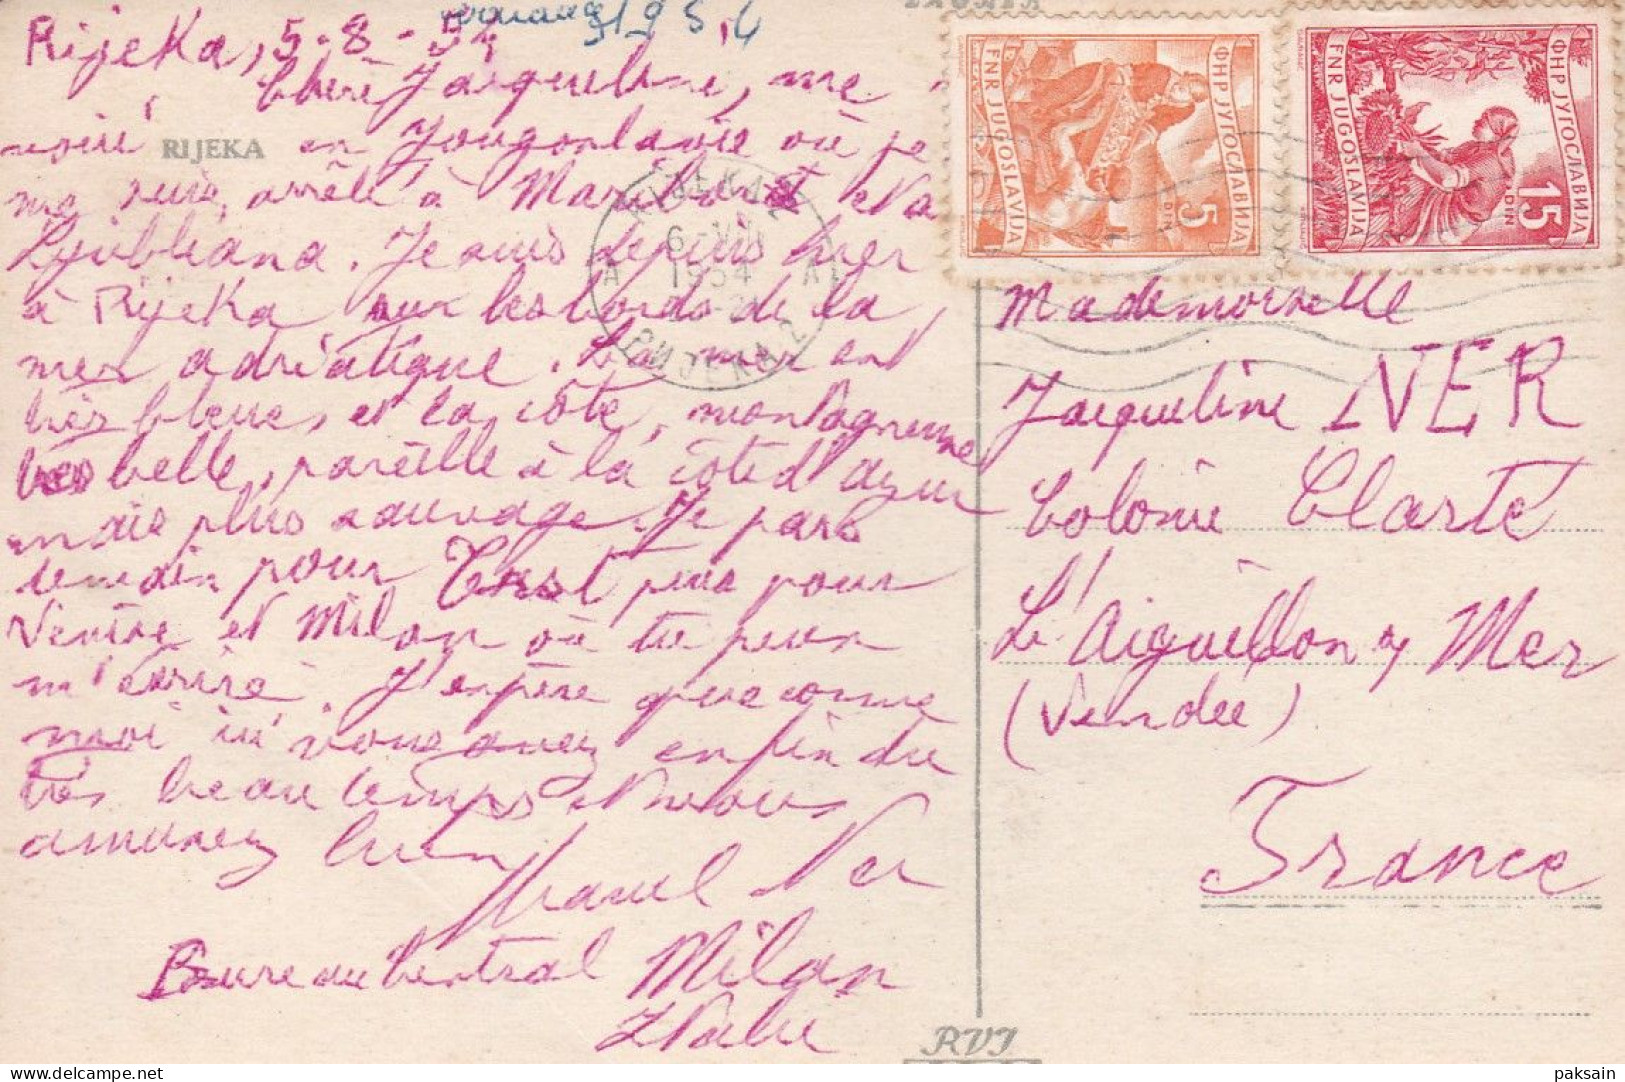 1954
Rijeka, 5-8-54
Chère Jacqueline, me
voici en Yougoslavie où je
RIJEKA
me suis arrêté à Maribor et à
Ljubliana. Je suis depuis hier
à Rijeka sur les bords de la
mer adriatique. La mer est
très bleue, et la côte, montagneuse
très belle, pareille à la côte d'azur
mais plus sauvage. Je pars
demain pour Triest puis pour
Venise et Milan où tu peux
m'écrire. J'espère que comme
moi ici vous avez enfin du
très beau temps et vous
amusez bien
Marcel Ner
Bureau Central Milan
Italie
RIJEKA 2
6-VIII
1954
A A1
РИЈЕКА 2
FNR JUGOSLAVIJA
ФНР ЈУГОСЛАВИЈА
5 DIN
FNR JUGOSLAVIJA
ФНР ЈУГОСЛАВИЈА
15 DIN
Mademoiselle
Jacqueline NER
Colonie Clarté
L'Aiguillon s/ Mer
(Vendée)
France
RVI
paksain